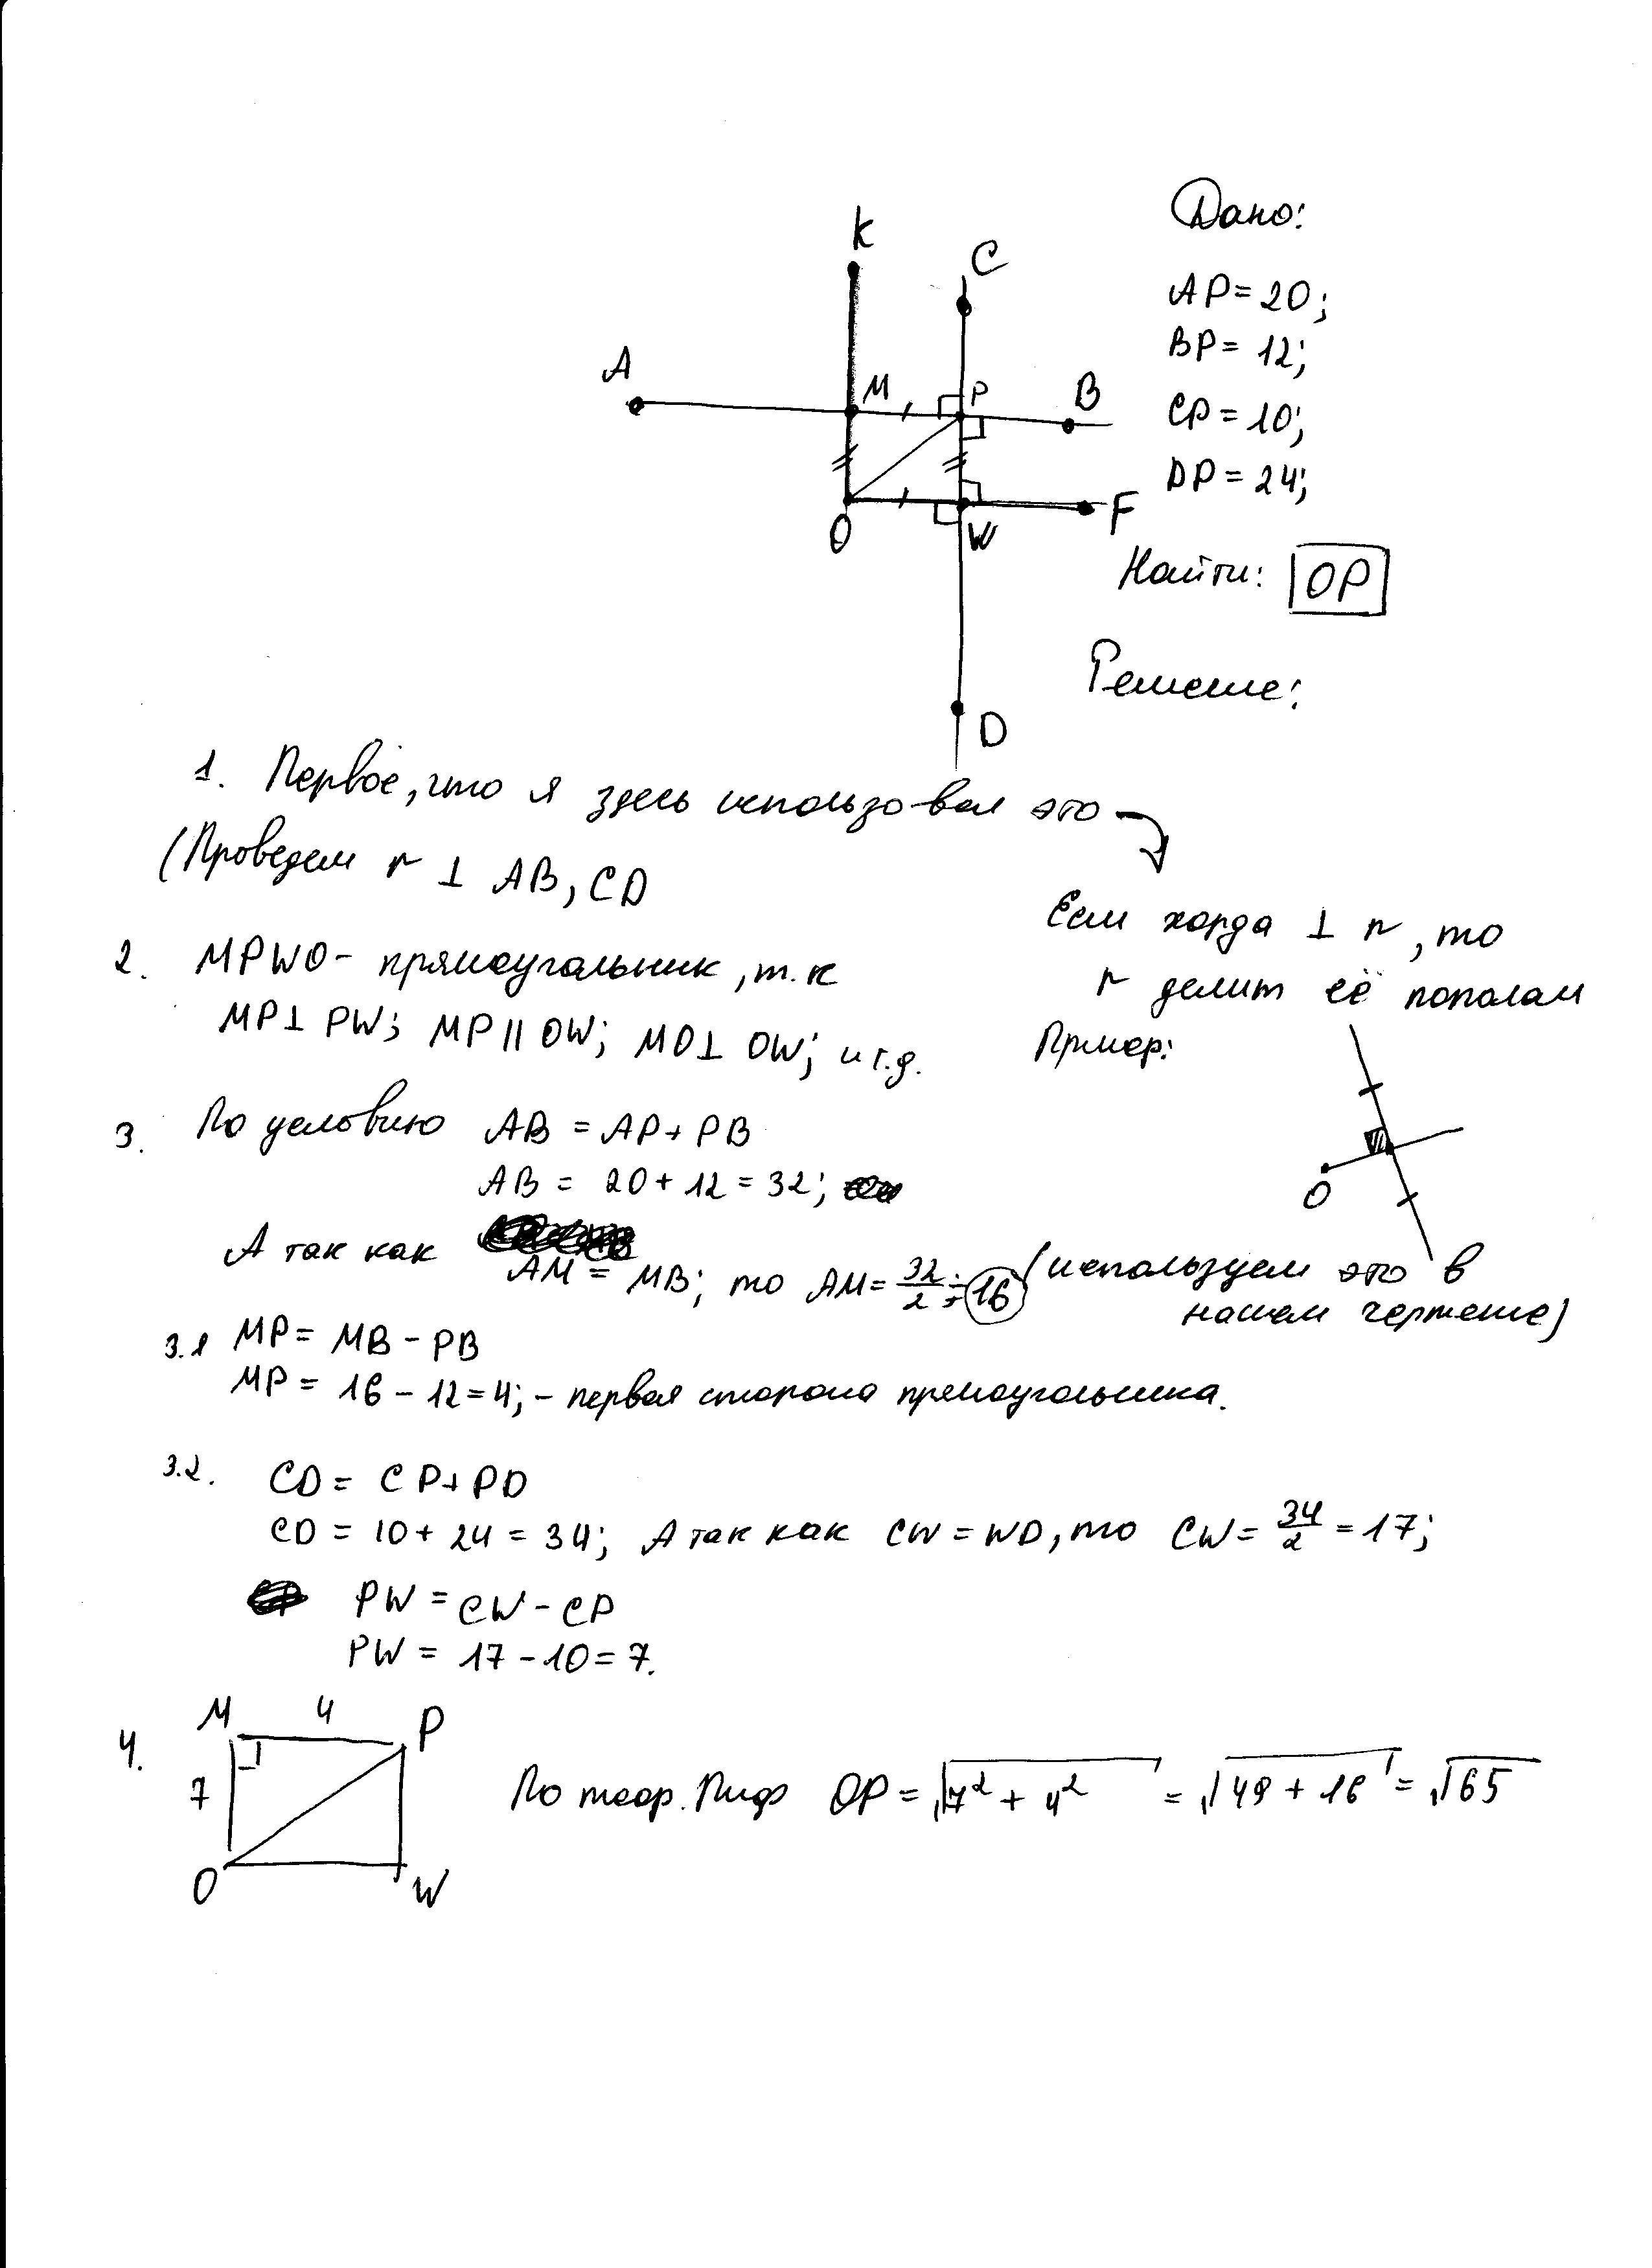 K
C
A
M
P
B
O
W
F
D
Дано:
AP = 20;
BP = 12;
CP = 10;
DP = 24;
Найти: OP
Решение:
1. Первое, что я здесь использовал это
(Проведем r ⊥ AB, CD
Если хорда ⊥ r, то
r делит её пополам
Пример:
O
(используем это в
нашем чертеже)
2. MPWO - прямоугольник, т.к
MP ⊥ PW; MP || OW; MO ⊥ OW; и т.д.
3. По условию AB = AP + PB
AB = 20 + 12 = 32;
А так как AM = MB; то AM = 32/2 = 16
3.1 MP = MB - PB
MP = 16 - 12 = 4; - первая сторона прямоугольника.
3.2. CD = CP + PD
CD = 10 + 24 = 34; А так как CW = WD, то CW = 34/2 = 17;
PW = CW - CP
PW = 17 - 10 = 7.
4. M 4 P
7
O W
По теор. Пиф OP = √7² + 4² = √49 + 16 = √65